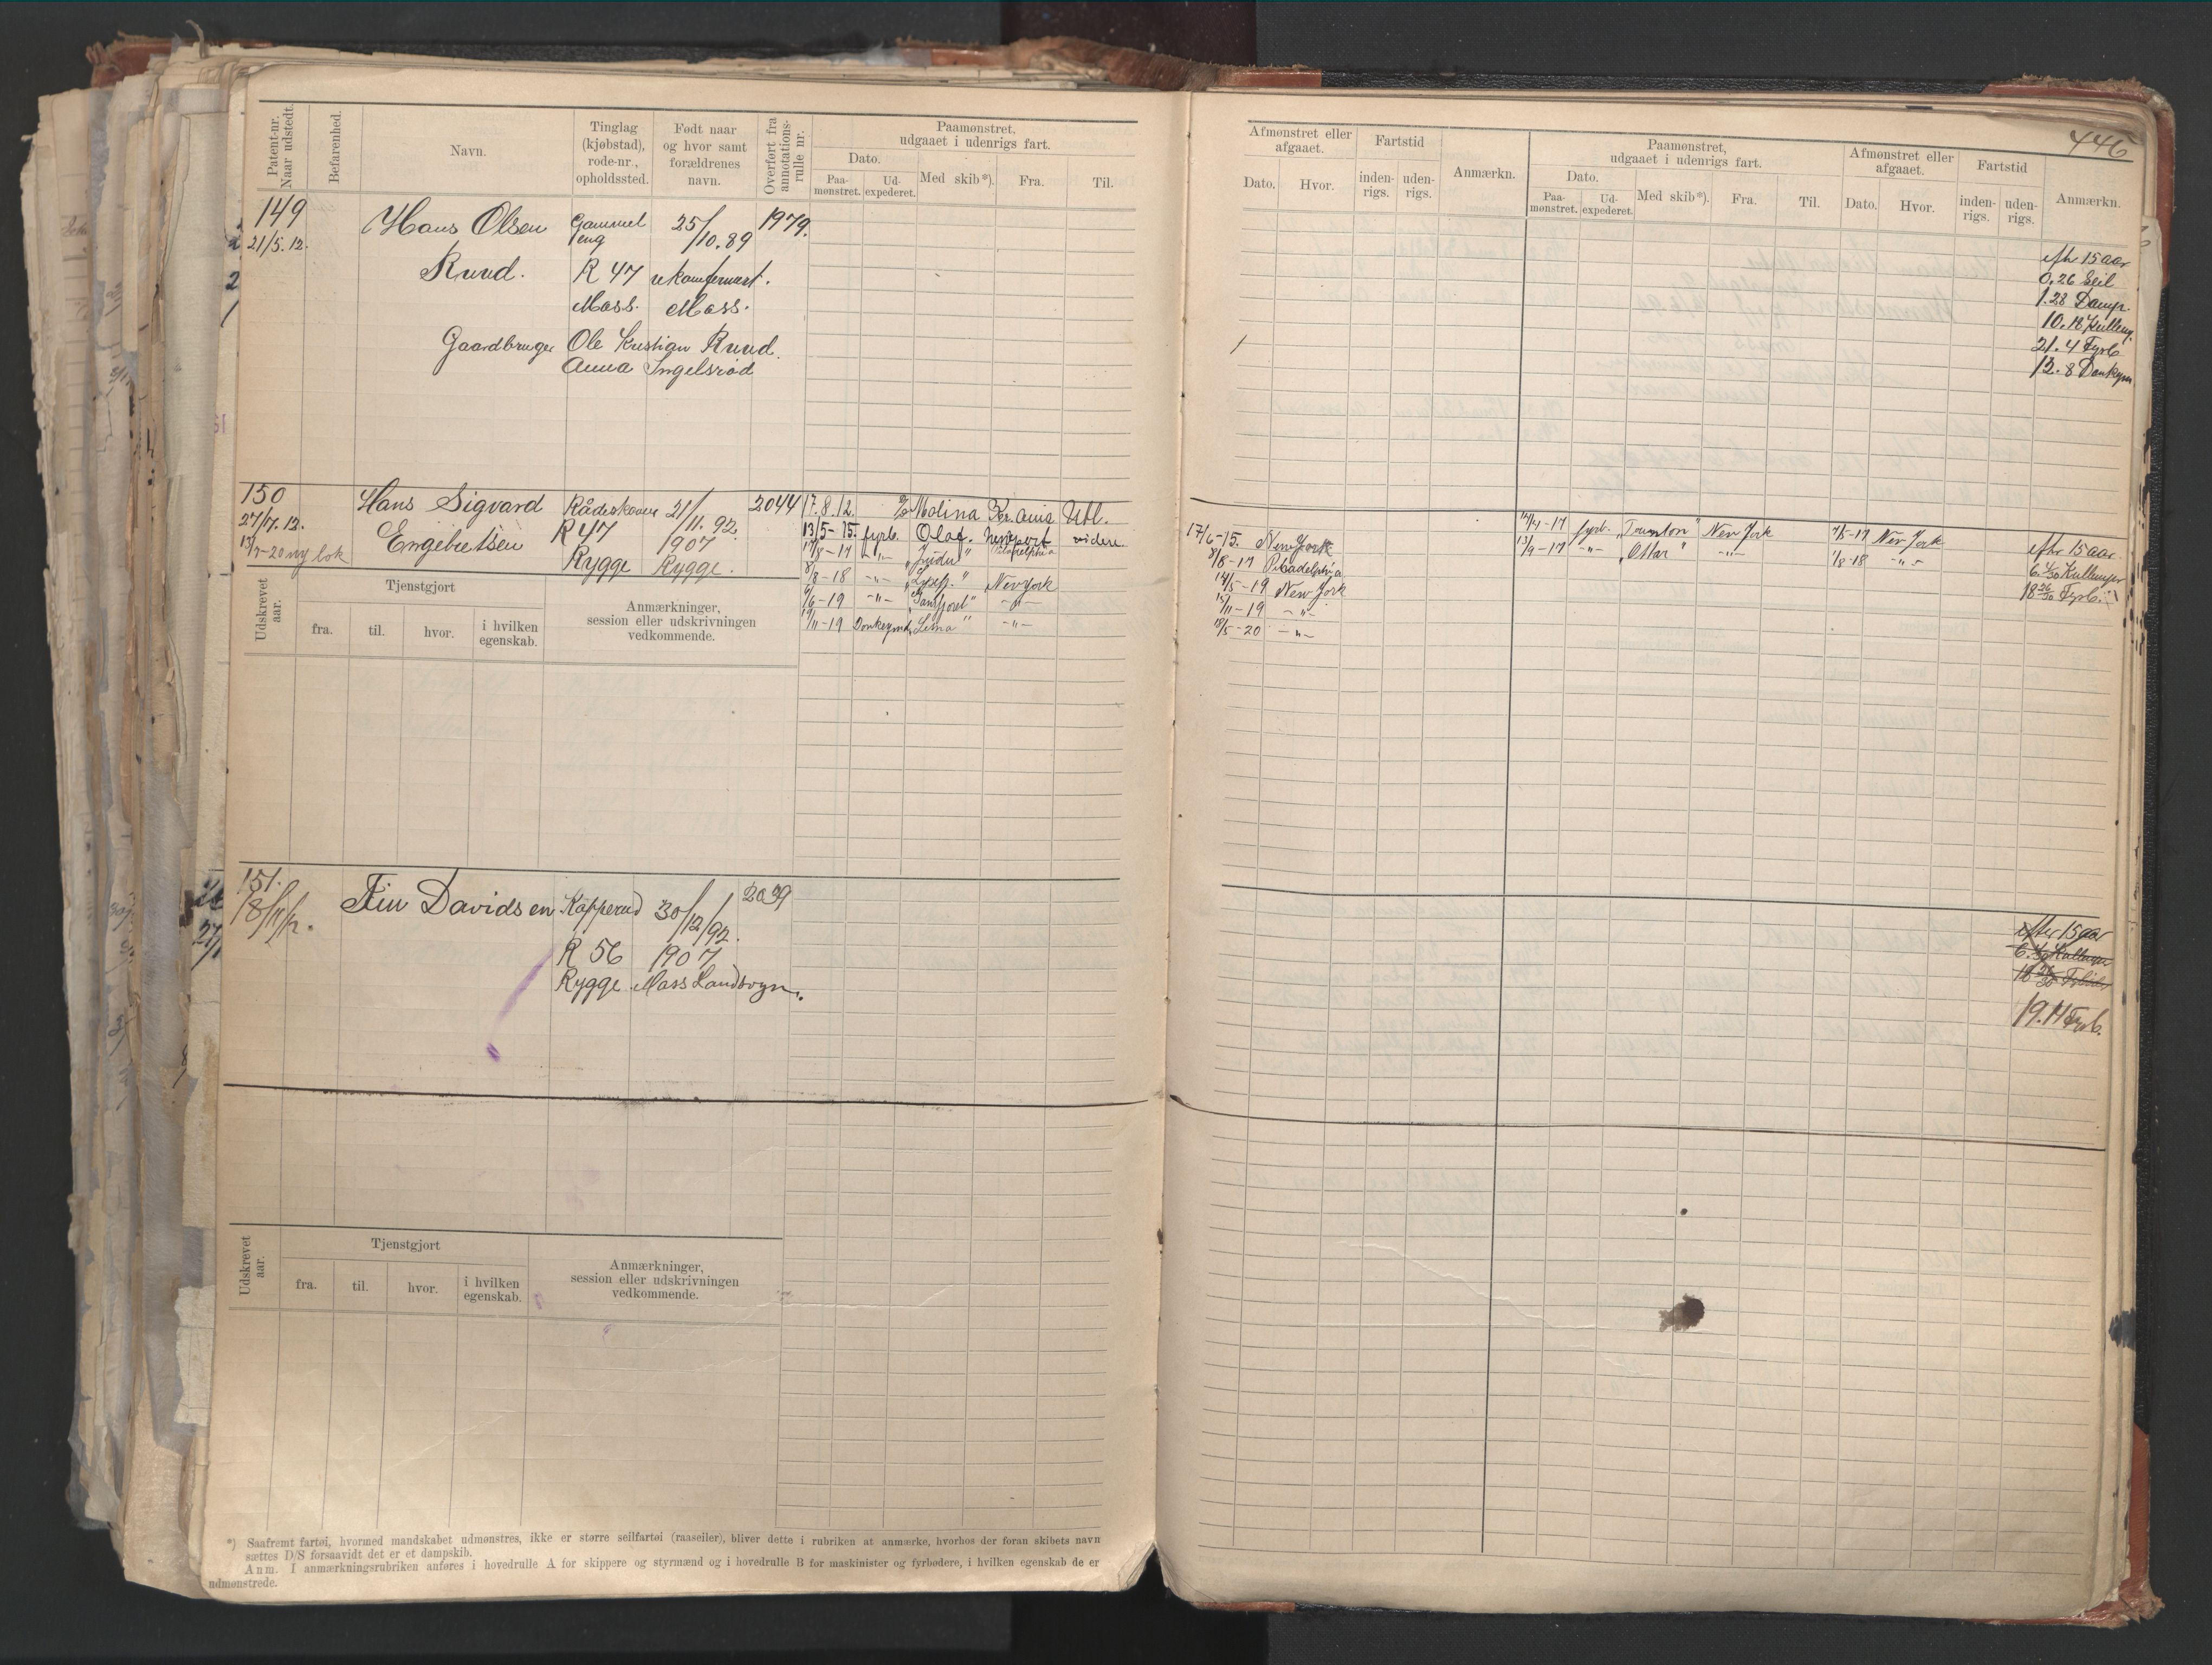 446
Patent-nr. Naar udstedt.
Befarenhed.
Navn.
Tinglag (kjøbstad), rode-nr., opholdssted.
Født naar og hvor samt forældrenes navn.
Overført fra annotations-rulle nr.
Paamønstret, udgaaet i udenrigs fart.
Dato.
Paa-mønstret.
Ud-expederet.
Med skib*).
Fra.
Til.
Afmønstret eller afgaaet.
Dato.
Hvor.
Fartstid
inden-rigs.
uden-rigs.
Anmærkn.
Paamønstret, udgaaet i udenrigs fart.
Dato.
Paa-mønstret.
Ud-expederet.
Med skib*).
Fra.
Til.
Afmønstret eller afgaaet.
Dato.
Hvor.
Fartstid
inden-rigs.
uden-rigs.
Anmærkn.
149
21/5.12.
Hans Olsen
Gammel
eng
25/10.89
1979.
Ruud.
R 47
Moss.
Moss.
Gaardbruger Ole Kristian Ruud.
Anna Ingelsrød
eftr 15 aar
0.26 Seil
1.28 Damp.
10.18 Kullemp.
21.4 Fyrb.
12.8 Donkym
150
27/7.12.
13/5-20 ny lok
Hans Sigvard
Engebretsen
Rådeskoven
R 47
Rygge
21/11.92.
1907
Rygge.
2044
17.8.12. Molina Kr.ania Utl.
13/5-15. fyrb. Olaf. Newport videre.
17/8-17 -"- Philadelphia
8/8-18 -"- New York
6/6-19 -"- -"-
19/11-19 Donkeymd. -"-
17/6-15. New York
8/8-17 Philadelphia
14/5-19 New York
15/11-19 -"-
18/5-20 -"-
14/4-17 fyrb. New York 7/5-17 New York
13/9-17 -"- "Ottar" -"- 1/8-18 -"-
eftr 15 aar
6. 4/30 Kullemper
18 26/30 Fyrb.
Udskrevet aar.
Tjenstgjort
fra.
til.
hvor.
i hvilken egenskab.
Anmærkninger, session eller udskrivningen vedkommende.
151.
18/11/12.
Fin Davidsen
Käpperud
R 56
Rygge
30/12/92.
1907
Moss Landsogn.
2039
efter 15 aar
6. 4/30 Kullemper
18 26/30 Fyrbøder
19.14 Fyrb.
Udskrevet aar.
Tjenstgjort
fra.
til.
hvor.
i hvilken egenskab.
Anmærkninger, session eller udskrivningen vedkommende.
*) Saafremt fartøi, hvormed mandskabet udmønstres, ikke er større seilfartøi (raaseiler), bliver dette i rubriken at anmærke, hvorhos der foran skibets navn
sættes D/S forsaavidt det er et dampskib.
Anm. I anmærkningsrubriken anføres i hovedrulle A for skippere og styrmænd og i hovedrulle B for maskinister og fyrbødere, i hvilken egenskab de er
udmønstrede.